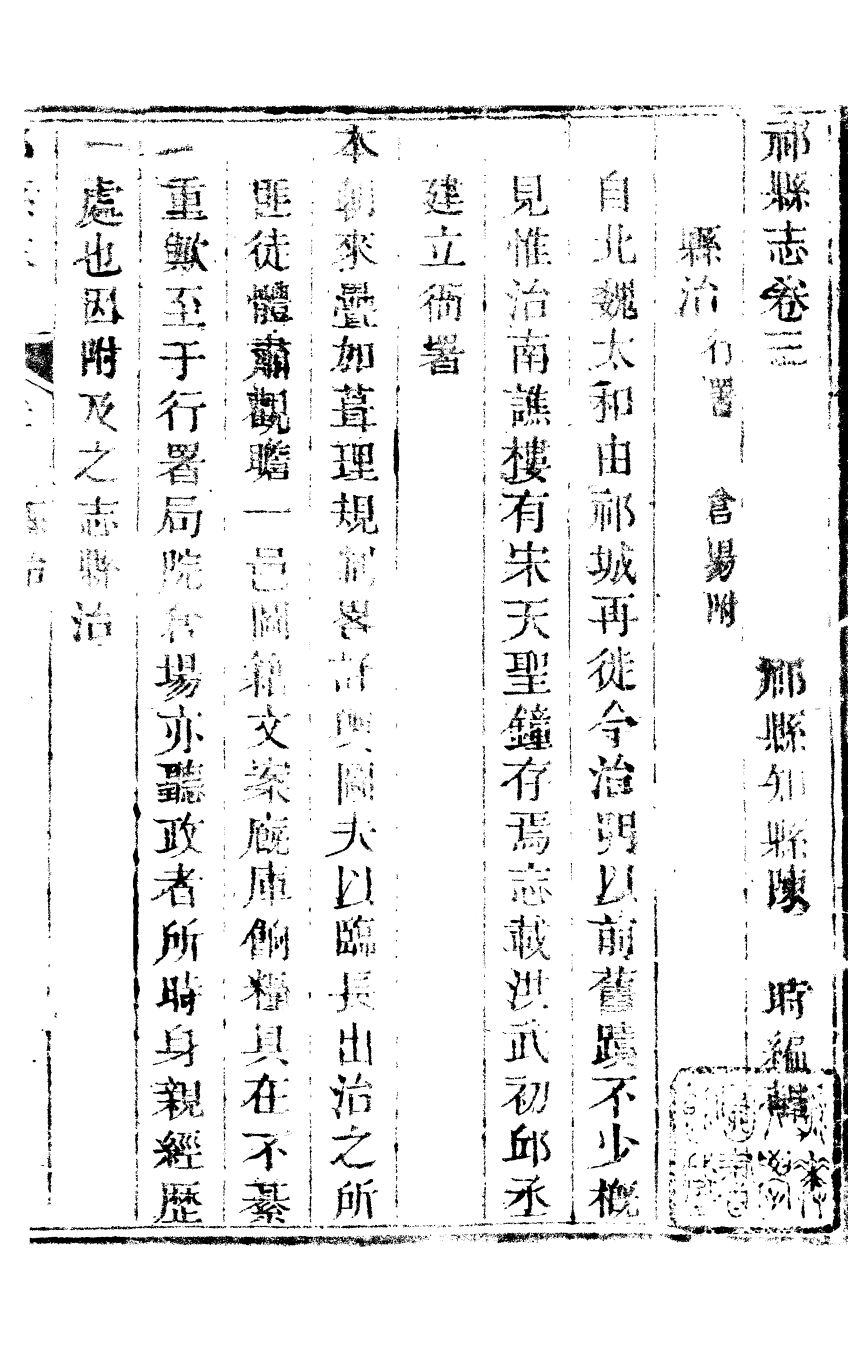 祁縣志卷三
祁縣知縣陳 時編輯
縣治 行署 倉場附
自北魏太和由祁城再徙今治明以前舊蹟不少概
見惟治南譙樓有宋天聖鐘存焉志載洪武初邱丞
建立衙署
本朝來疊加葺理規制畧 輿圖夫以臨長出治之所
匪徒體肅觀瞻一邑圖籍文案廒庫餉糈具在不綦
重歟至于行署局院倉場亦聽政者所時身親經歷
一處也因附及之志縣治